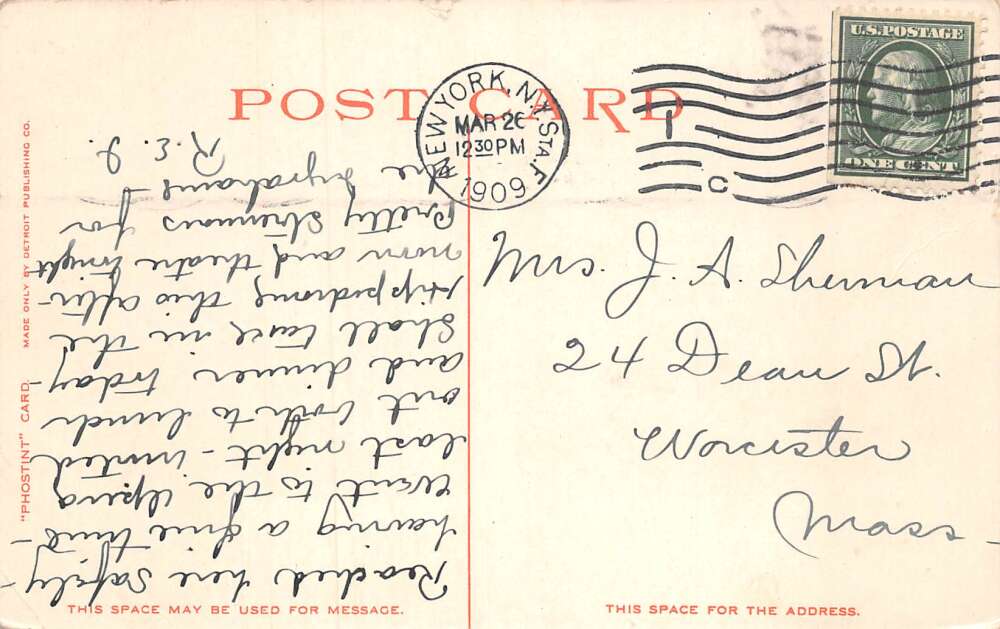 POST CARD
NEW YORK, N.Y. STA. F
MAR 26
12 30 PM
1909
C
U.S. POSTAGE
ONE CENT
Mrs. J. A. Sherman
24 Dean St.
Worcester
Mass—
Reached here safely—
having a fine time—
Went to the Opera
last night - invited
out both to lunch
and dinner today—
Shall take in the
Hippodrome this after-
noon and theatre tonight
Pretty strenuous for
the
R. E. J.
"PHOSTINT" CARD. MADE ONLY BY DETROIT PUBLISHING CO.
THIS SPACE MAY BE USED FOR MESSAGE.
THIS SPACE FOR THE ADDRESS.